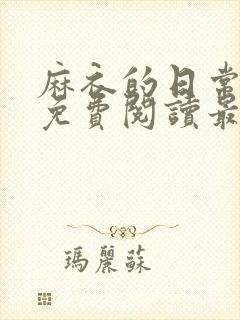 麻衣的日常
免費閱讀最
瑪麗蘇